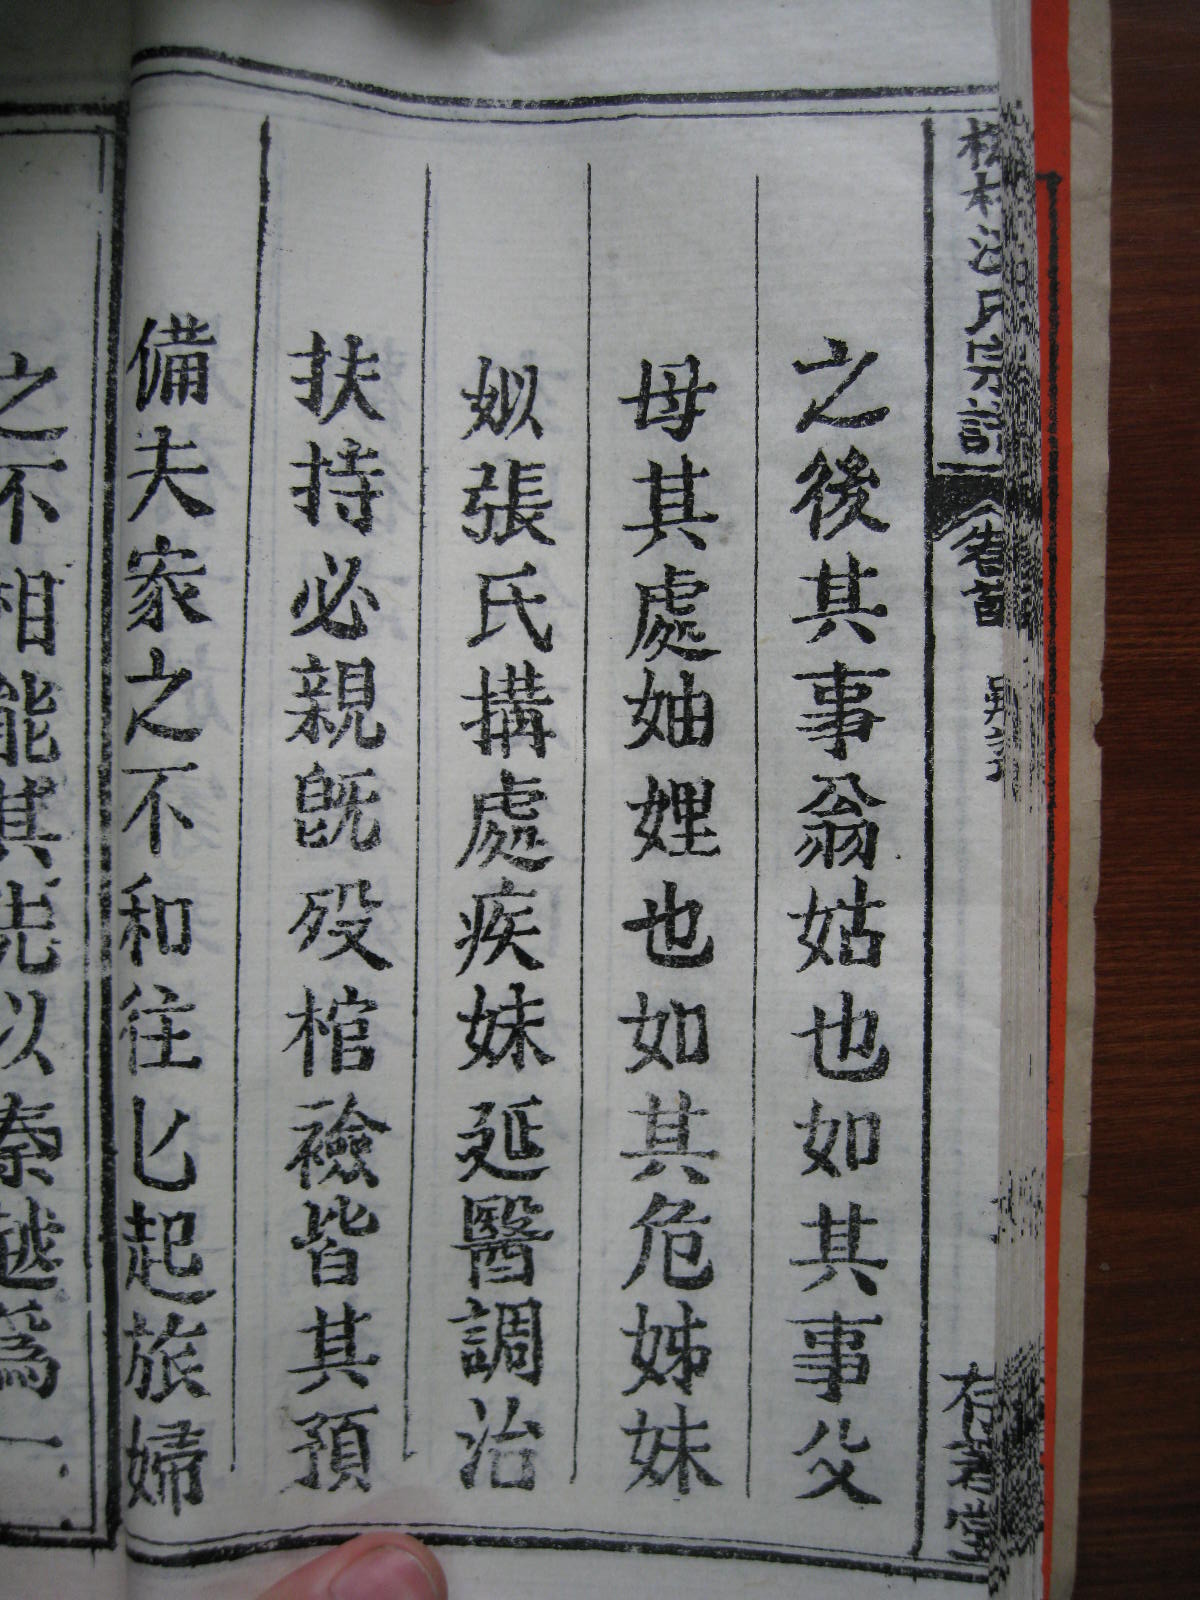 之後其事翁姑也如其事父
母其處妯娌也如其危姊妹
姒張氏搆處疾妹延醫調治
扶持必親旣歿棺襝皆其預
備夫家之不和往匕起旅婦
之不相能其先以秦越爲一